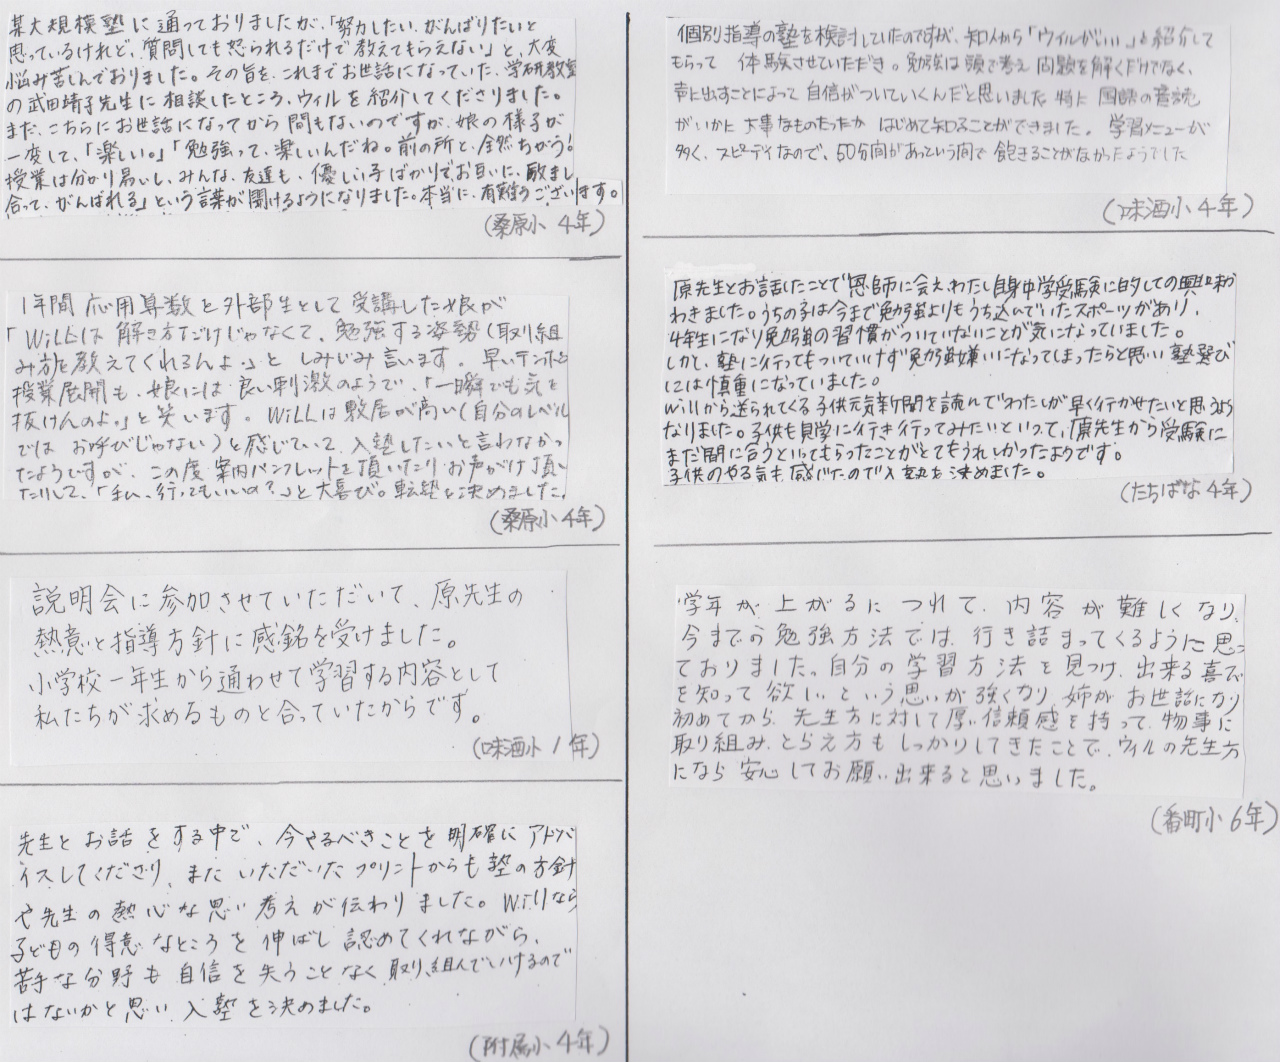 某大規模塾に通っておりましたが、「努力したい、がんばりたいと
思っているけれど、質問しても怒られるだけで教えてもらえない」と、大変
悩み苦しんでおりました。その旨を、これまでお世話になっていた、学研教室
の武田靖子先生に相談したところ、ウィルを紹介してくださりました。
まだ、こちらにお世話になってから間もないのですが、娘の様子が
一変して、「楽しい。」「勉強って、楽しいんだね。前の所と、全然ちがう!
授業は分かり易いし、みんな、友達も、優しい子ばかりで、お互いに、励まし
合って、がんばれる」という言葉が聞けるようになりました。本当に、有難うございます。
(桑原小 4年)
1年間 応用算数を外部生として受講した娘が
「WiLLは 解き方だけじゃなくて、勉強する姿勢(取り組
み方)を教えてくれるんよ。」と しみじみ言います。早いテンポの
授業展開も、娘には良い刺激のようで、「一瞬でも気を
抜けんのよ。」と笑います。WiLLは敷居が高い(自分のレベル
では お呼びじゃない)と感じていて、入塾したいと言わなかっ
たようですが、この度 案内パンフレットを頂いたり お声がけ頂い
たりして、「私、行ってもいいの?」と大喜び。転塾を決めました。
(桑原小4年)
説明会に参加させていただいて、原先生の
熱意と指導方針に感銘を受けました。
小学校一年生から通わせて学習する内容として
私たちが求めるものと合っていたからです。
(味酒小1年)
先生とお話をする中で、今やるべきことを明確にアドバ
イスしてくださり、また いただいたプリントからも塾の方針
や先生の熱心な思い考えが伝わりました。Willなら
子どもの得意なところを伸ばし認めてくれながら、
苦手な分野も自信を失うことなく取り組んでいけるので
はないかと思い、入塾を決めました。
(附属小4年)
個別指導の塾を検討していたのですが、知人から「ウィルがいい」と紹介して
もらって 体験させていただき。勉強は頭で考え問題を解くだけでなく、
声に出すことによって自信がついていくんだと思いました。特に国語の音読
がいかに大事なものだったか はじめて知ることができました。学習メニューが
多く、スピーディなので、50分間があっという間で飽きることがなかったようでした
(味酒小4年)
原先生とお話したことで「恩師に会え、わたし自身中学受験に対しての興味が
わきました。うちの子は今まで勉強よりもうち込んでいたスポーツがあり、
4年生になり勉強の習慣がついていないことが気になっていました。
しかし、塾に行ってもついていけず勉強嫌いになってしまったらと思い塾選び
には慎重になっていました。
Willから送られてくる子供元気新聞を読んでわたしが早く行かせたいと思うよう
なりました。子供も見学に行き行ってみたいといって、原先生から受験に
まだ間に合うといってもらったことがとてもうれしかったようです。
子供のやる気を感じたので入塾を決めました。
(たちばな4年)
学年が上がるにつれて、内容が難しくなり、
今までの勉強方法では、行き詰まってくるように思っ
ておりました。自分の学習方法を見つけ、出来る喜び
を知って欲しいという思いが強くなり、姉がお世話になり
初めてから、先生方に対して厚い信頼感を持って、物事に
取り組み、とらえ方もしっかりしてきたことで、ウィルの先生方
になら安心してお願い出来ると思いました。
(番町小6年)